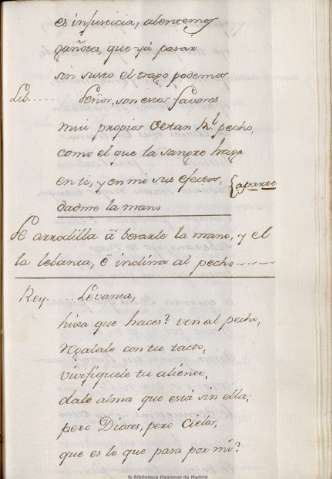 es injusticia, alentemos
gañotes, que ya pasar
sin susto el trago podemos
Lib..... Señor, son estos favores
mui propios de tan Rl. pecho,
como el que la sangre haga
en ti, y en mi sus efectos, aparte
dadme la mano
Se arrodilla â besarle la mano, y el
la lebanta, é inclina al pecho......
Rey..... Levanta,
hixa que haces? ven al pecho,
Regalale con tu tacto,
vivifiquele tu aliento,
dale alma que està sin ella,
pero Dioses, pero Cielos,
que es lo que pasa por mi?
© Biblioteca Regional de Madrid